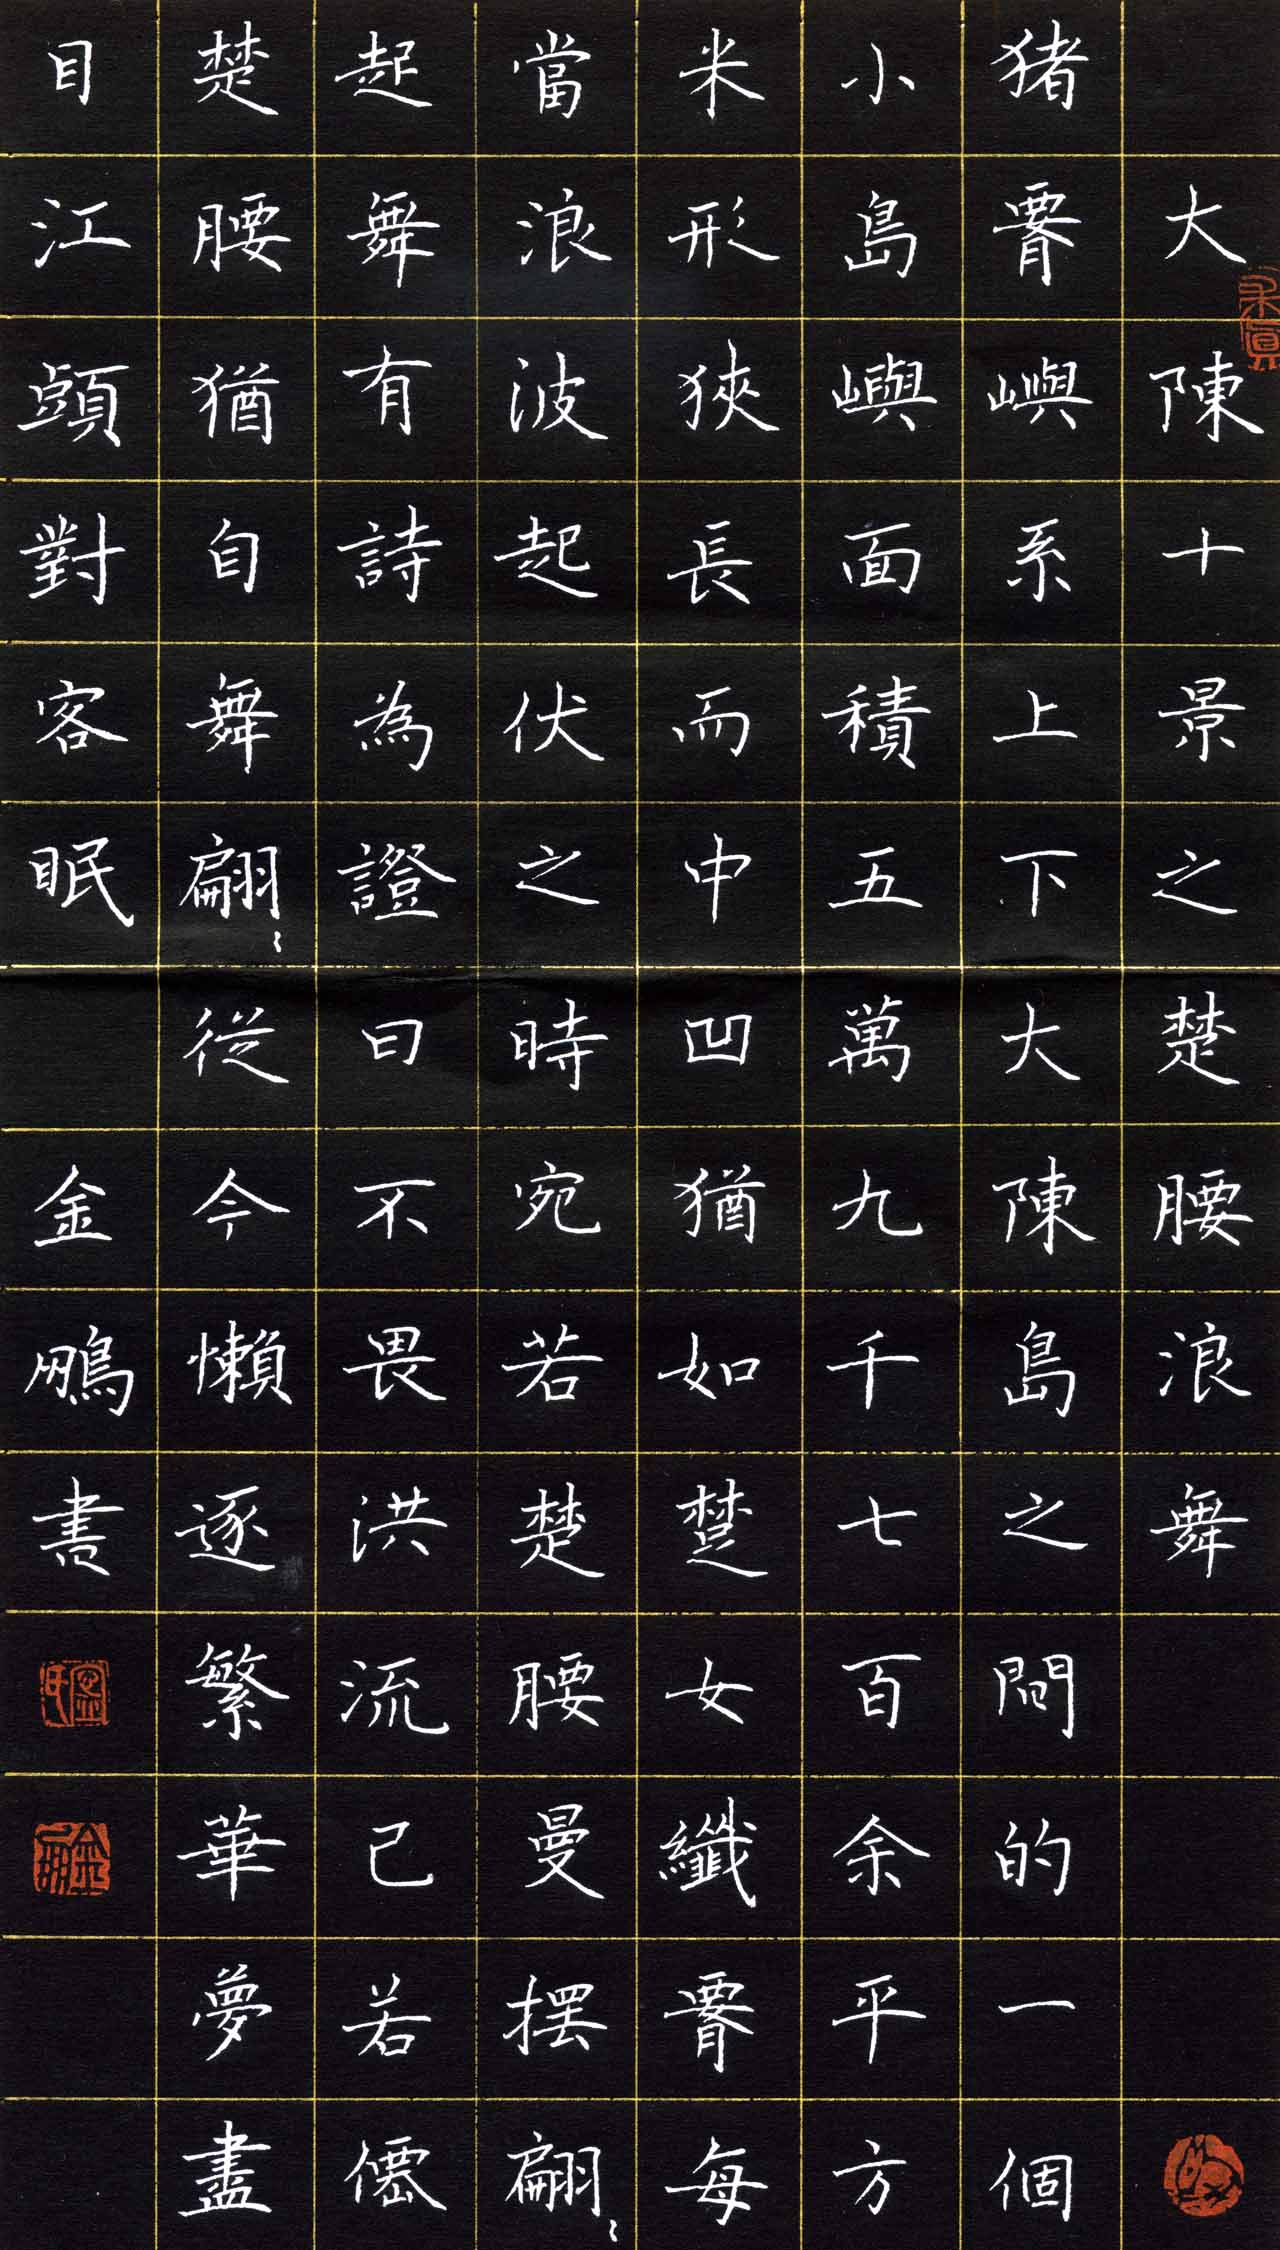 大陳十景之楚腰浪舞
猪腰嶼系上下大陳島之間的一個
小島嶼面積五萬九千七百余平方
米形狹長而中凹猶如楚女纖腰每
當浪波起伏之時宛若楚腰曼摆翩〻
起舞有詩為證曰不畏洪流已若僊
楚腰猶自舞翩〻從今懶逐繁華夢盡
目江頭對客眠 金鵬書